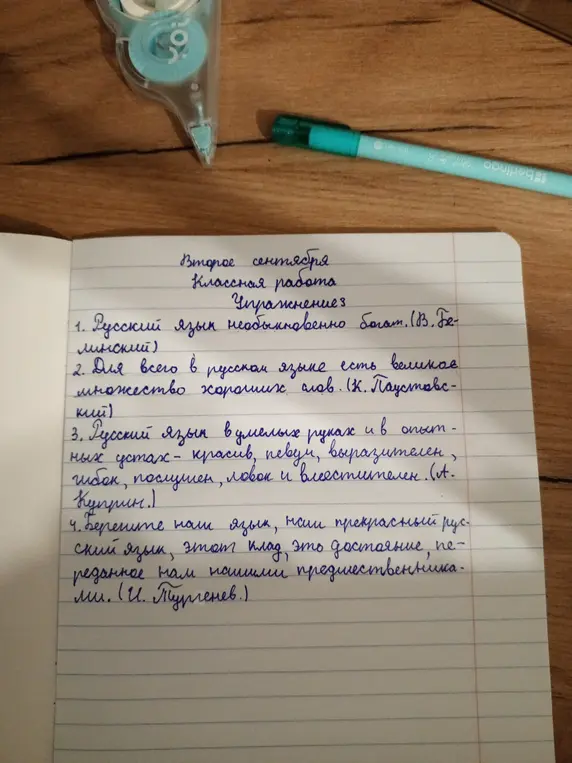 berlingo
Второе сентября
Классная работа
Упражнение3
1. Русский язык необыкновенно богат. (В. Бе-
линский)
2. Для всего в русском языке есть великое
множество хороших слов. (К. Паустовс-
кий)
3. Русский язык в умелых руках и в опыт-
ных устах - красив, певуч, выразителен,
гибок, послушен, ловок и вместителен. (А.
Куприн.)
4. Берегите наш язык, наш прекрасный рус-
ский язык, этот клад, это достояние, пе-
реданное нам нашими предшественника-
ми. (И. Тургенев.)